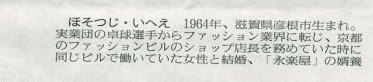 ほそつじ・いへえ　1964年、滋賀県彦根市生まれ。
実業団の卓球選手からファッション業界に転じ、京都
のファッションビルのショップ店長を務めていた時に
同じビルで働いていた女性と結婚、「永楽屋」の婿養